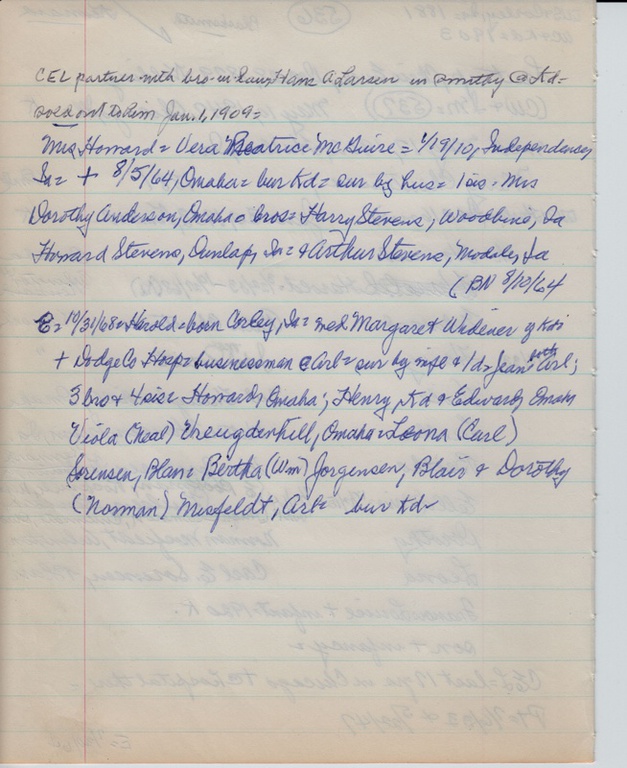 CEL partner with bro-in-law, Hans A. Larsen in smithy @ Kd=
sold out to him Jan. 1, 1909=
Mrs Howard = Vera Beatrice McGuire = 1/19/10, Independence,
Ia = + 8/5/64, Omaha = bur Kd = sur by hus = 1 sis = Mrs
Dorothy Anderson, Omaha = bros = Harry Stevens, Woodbine, Ia
Howard Stevens, Dunlap, Ia = & Arthur Stevens, Modale, Ia
(BN 8/10/64
E = 10/31/68 = Harold = born Corley, Ia = med Margaret Widener of Kd =
+ Dodge Co Hosp = businessman @ Arl = sur by wife & 1 d = Jean both Arl;
3 bro + 4 sis = Howard, Omaha; Henry, Kd & Edward, Omaha
Viola (Neal) Vreugdenhill, Omaha = Leona (Carl)
Sorensen, Blair = Bertha (Wm) Jorgensen, Blair & Dorothy
(Norman) Misfeldt, Arl = bur Kd =